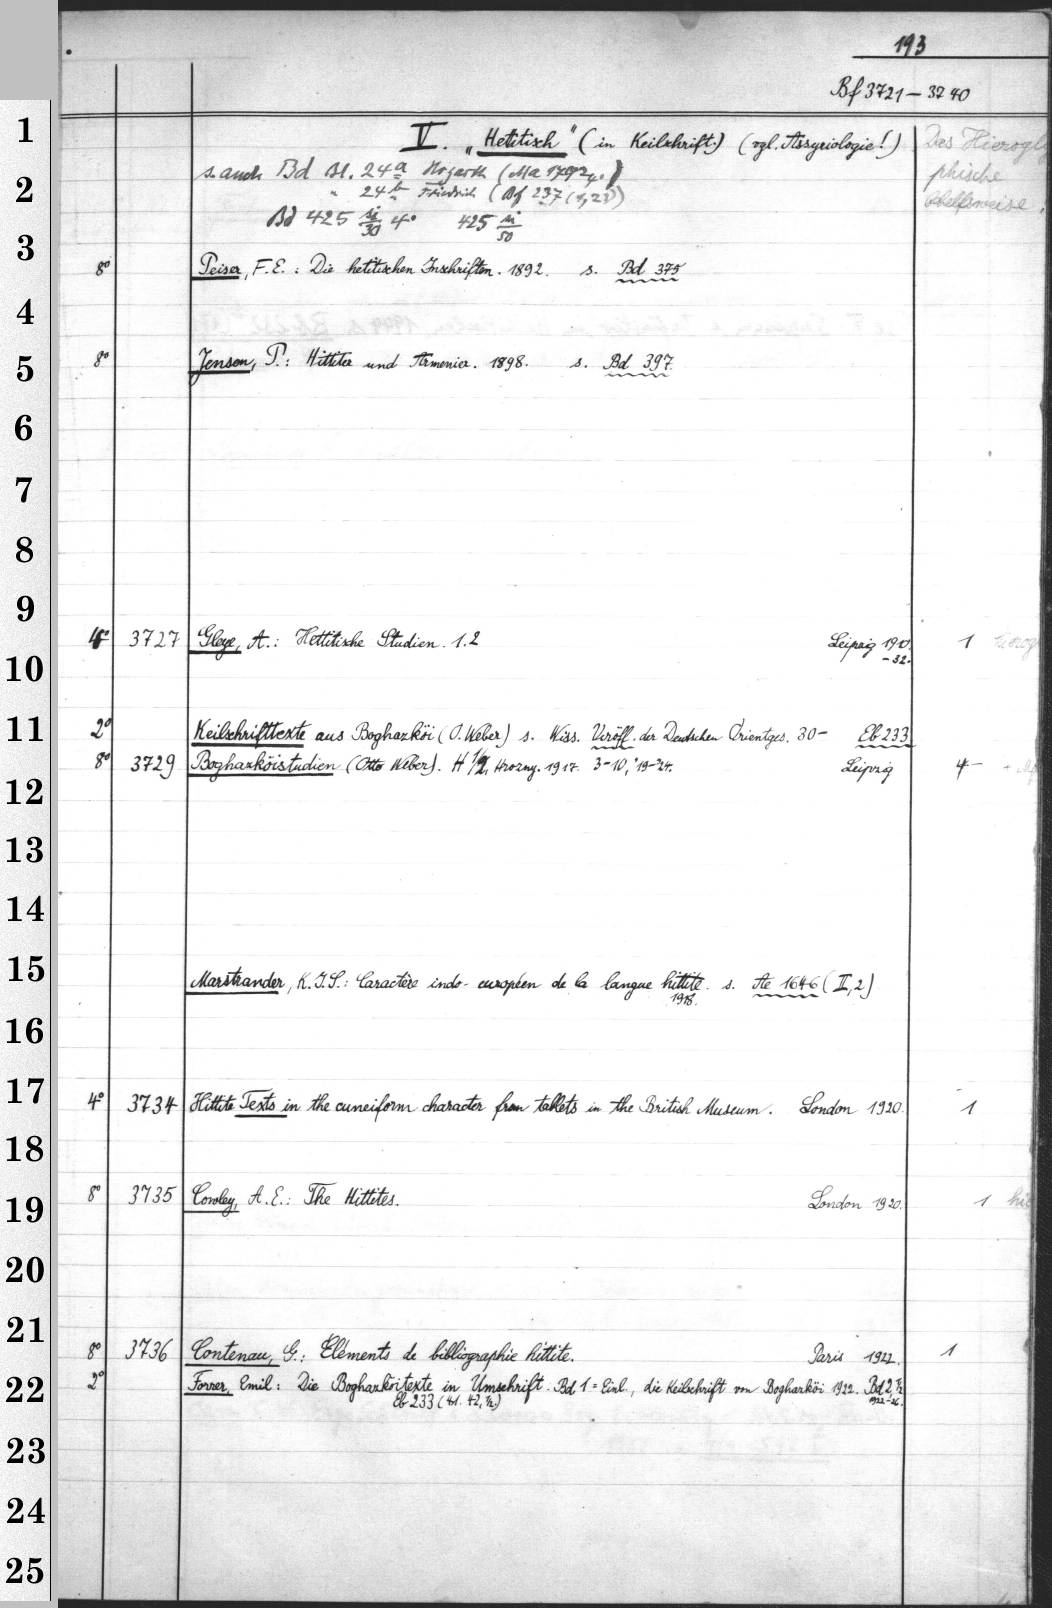 193
Bf 3721 – 3740
1
V. „Hetitisch" (in Keilschrift.) (vgl. Assyriologie!) Das Hierogly
phische
s. auch Bd Bl. 24a Hogarth (Ma
2
" 24b Friedrich (Bf 237 (1,23))
Bd 425 4° 425
3
8° Peiser, F.E.: Die hetitischen Inschriften. 1892. s. Bd 375
4
5
8° Jensen, P.: Hittiter und Armenier. 1898. s. Bd 397.
6
7
8
9
4° 3727 Gleye, A.: Hettitische Studien. 1.2 Leipzig 1910 1
–32.
10
11
2° Keilschrifttexte aus Boghazköi (O. Weber) s. Wiss. Veröff. der Deutschen Orientges. 30– Eb 233
8° 3729 Boghazköistudien (Otto Weber). H 1/2, Hrozny. 1917. 3–10, '19–'24. Leipzig 4–
12
13
14
15
Marstrander, K.J.S.: Caractère indo-européen de la langue hittite. s. Ae 1646 (II,2)
1918.
16
17
4° 3734 Hittite Texts in the cuneiform character from tablets in the British Museum. London 1920. 1
18
19
8° 3735 Cowley, A.E.: The Hittites. London 1920. 1
20
21
8° 3736 Contenau, G.: Eléments de bibliographie hittite. Paris 1922. 1
22
2° Forrer, Emil: Die Boghazköitexte in Umschrift. Bd. 1 = Einl., die Keilschrift von Boghazköi 1922. Bd 2, 1/2
Eb 233 (41. 42, 1/2.) 1922–26.
23
24
25